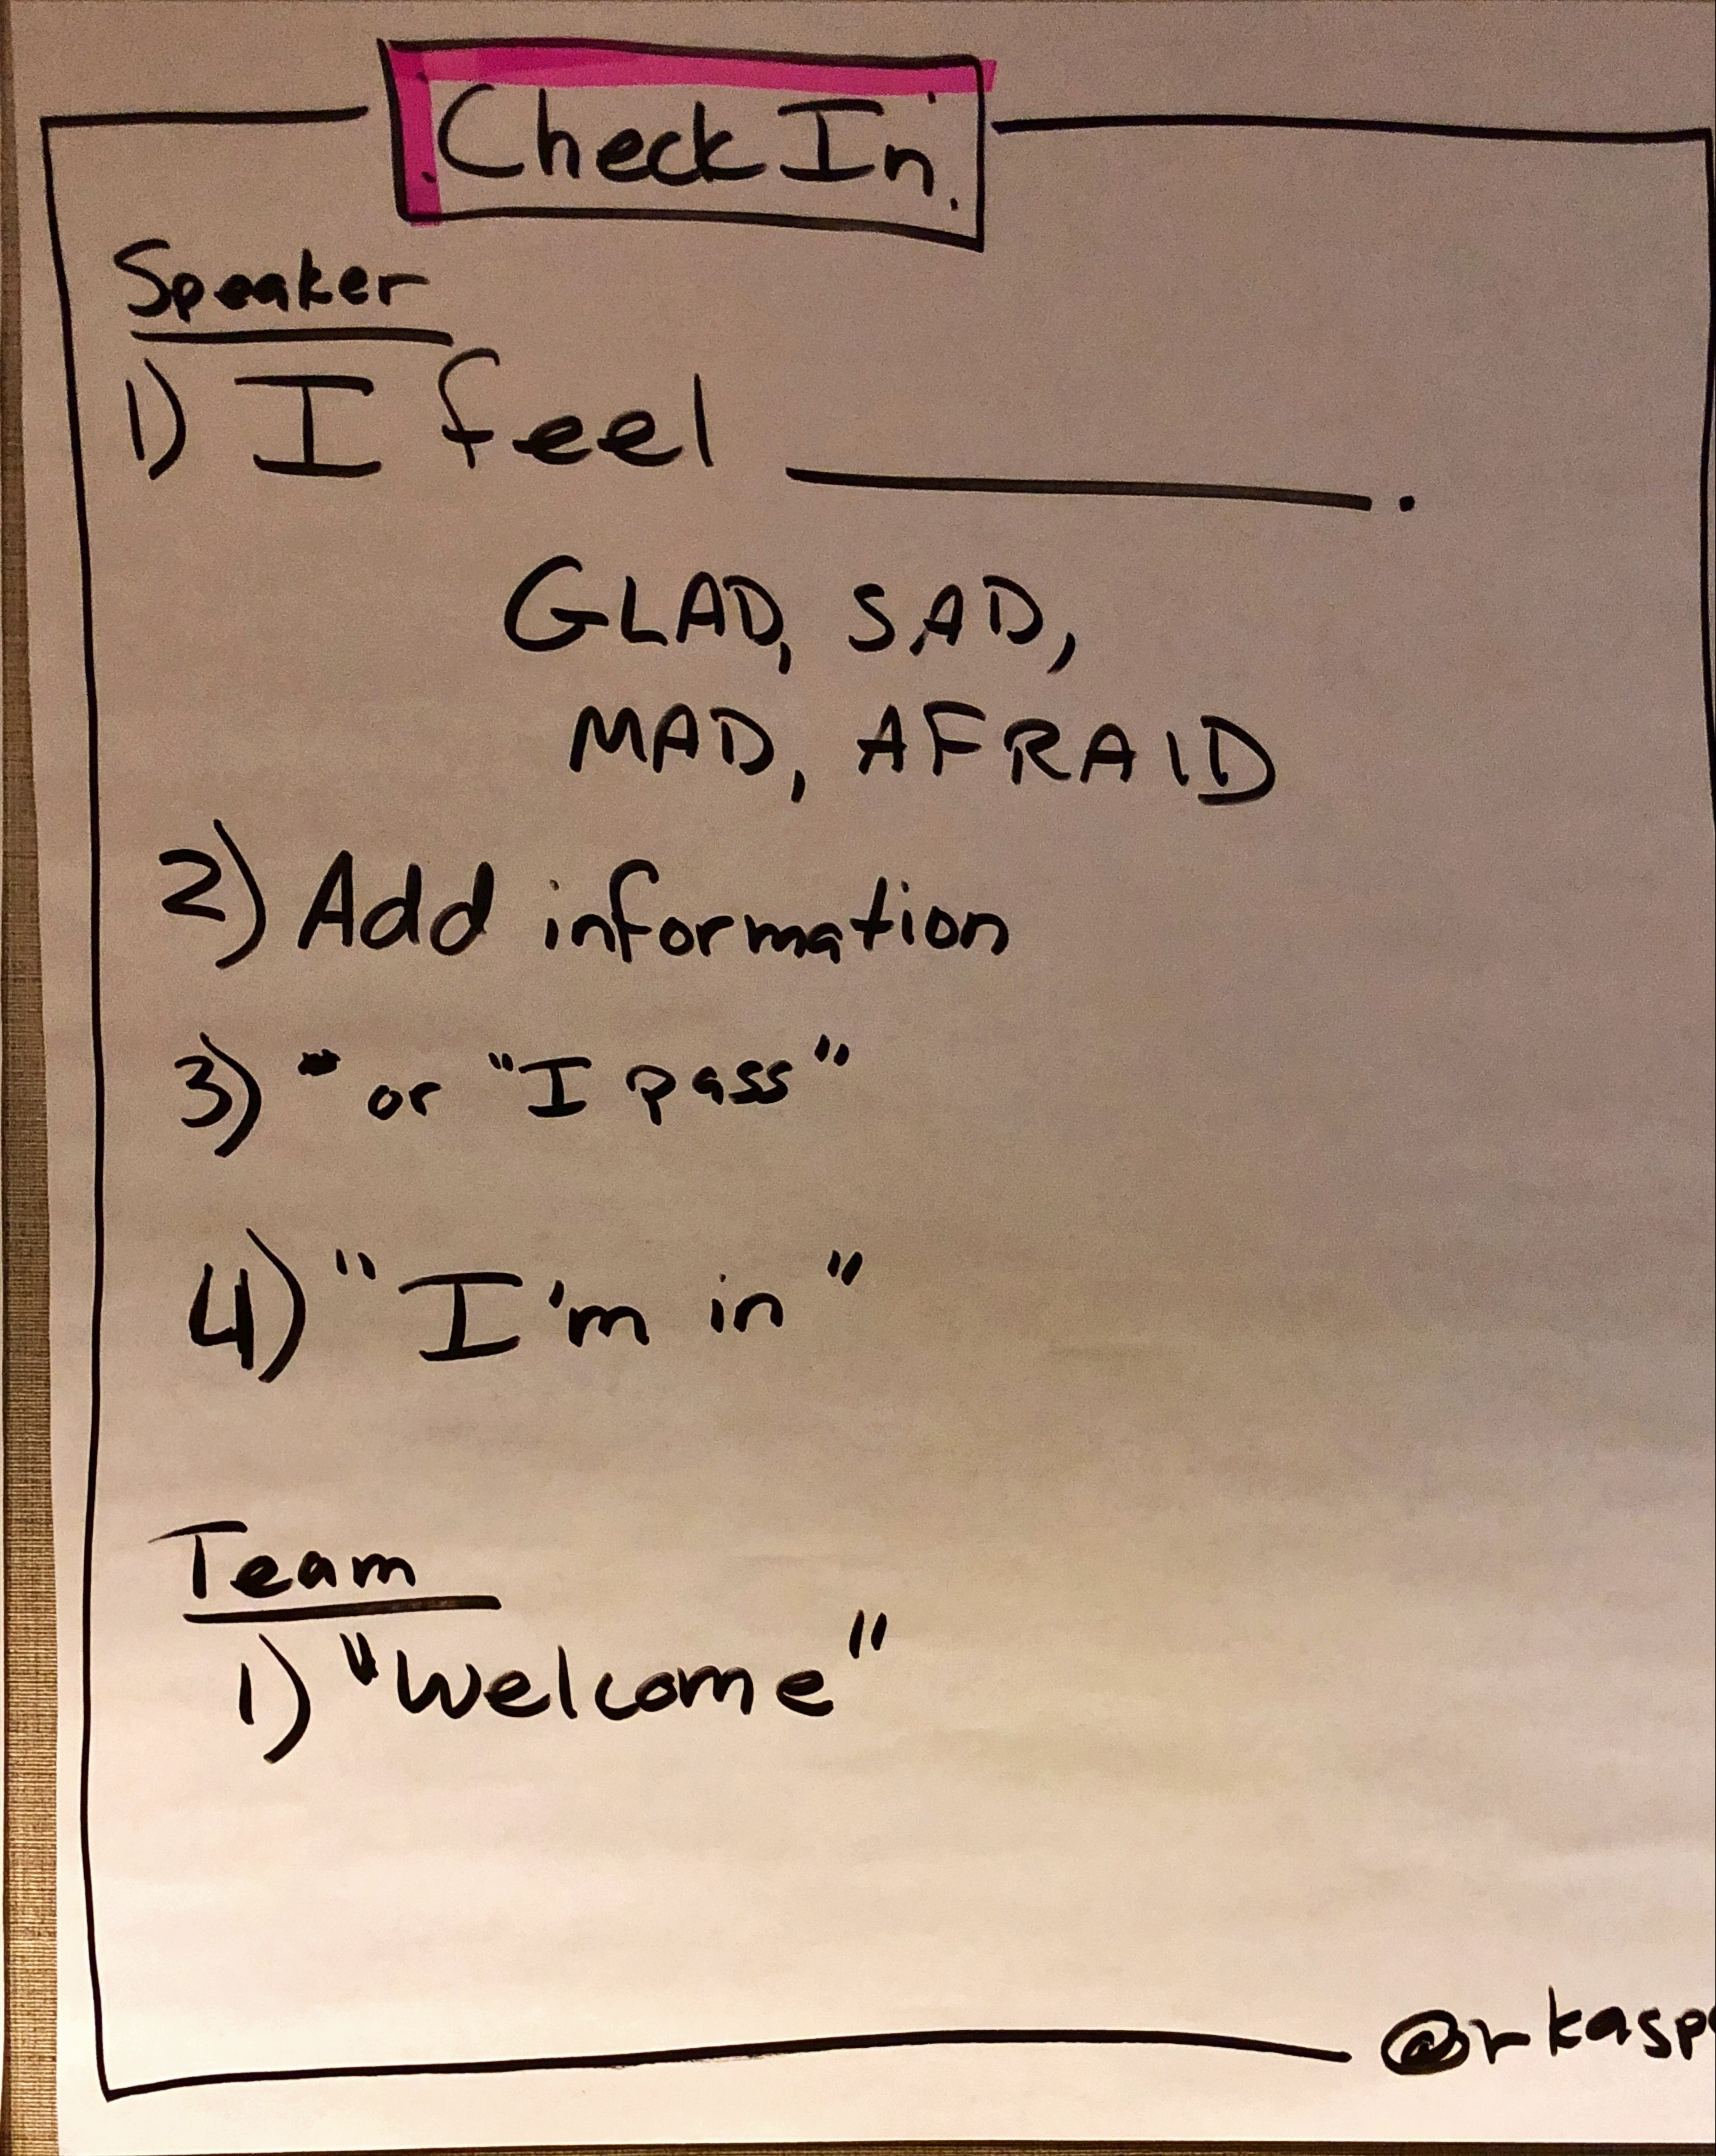 Check In
Speaker
1) I feel ________.
GLAD, SAD,
MAD, AFRAID
2) Add information
3) " or "I pass"
4) "I'm in"
Team
1) "Welcome"
@rkasp